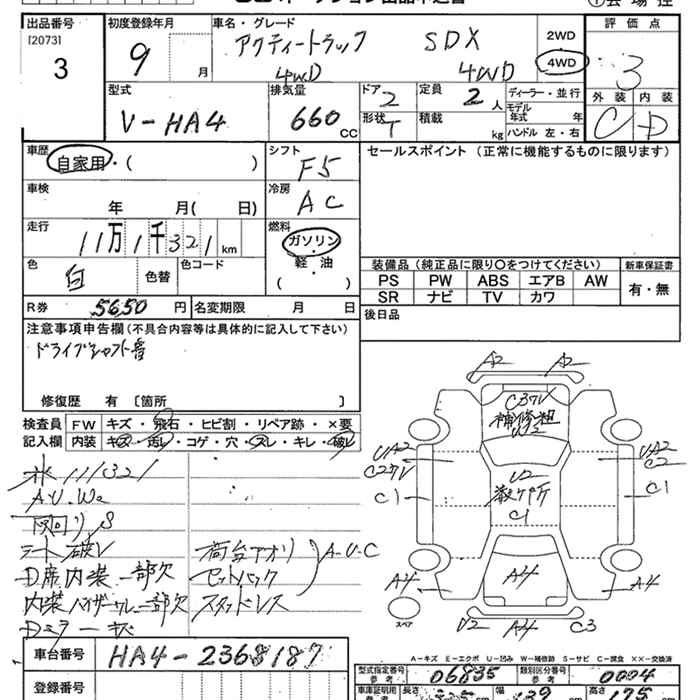 出品番号 初度登録年月 車名・グレード 評価点
[2073]
3 9 月 アクティートラック SDX 2WD 4WD 3
4WD 4WD
型式 排気量 ドア 定員 ディーラー・並行 外装 内装
V-HA4 660 CC 2 2 人 モデル年式 年 C D
形状 T 積載 kg ハンドル 左・右
車歴 シフト セールスポイント (正常に機能するものに限ります)
自家用・( ) F5
車検 冷房
年 月( 日) AC
走行 燃料
11万1千321km ガソリン・軽・油 ( )
色 白 色替 色コード
装備品 (純正品に限り〇をつけてください) 新車保証書
PS PW ABS エアB AW 有・無
SR ナビ TV カワ
R券 5650 円 名変期限 月 日
後日品
注意事項申告欄(不具合内容等は具体的に記入して下さい)
ドライブシャフト音
修復歴 有 [箇所 ]
検査員記入欄 FW キズ・飛石・ヒビ割・リペア跡・×要
内装 キズ・汚レ・コゲ・穴・スレ・キレ・破レ
111321
A.U.W2
下回りS
シート破レ
D席内装一部欠
内装バイザークレー一部欠
Dミラーキズ
荷台アオリ A-U-C
セットバック
スタッドレス
A2 A2
C3ワレ
補修粗
U2
UA2 UA2
C2ワレ C2
C1 C1
U2
数ヶ所
C1
A4 A4 A4
スペア
U2 A4 C3
A-キズ E-エクボ U-凹み W-補修跡 S-サビ C-腐食 ××-交換済
車台番号 HA4-2368187
登録番号
型式指定番号 参考 06835 類別区分番号 参考 0004
車庫証明用 長さ 幅 139 高さ 175